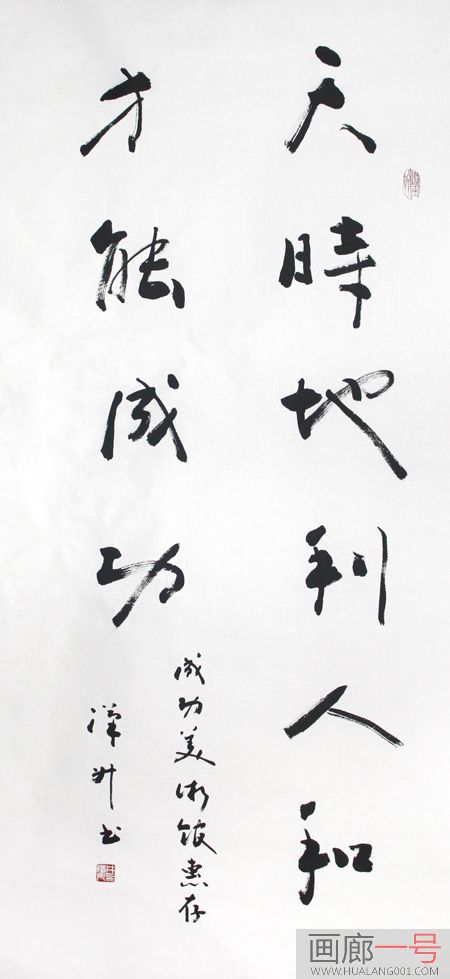 天時地利人和
才能成功
成功美術館惠存
漢升书
画廊一号
WWW.HUALANG001.COM